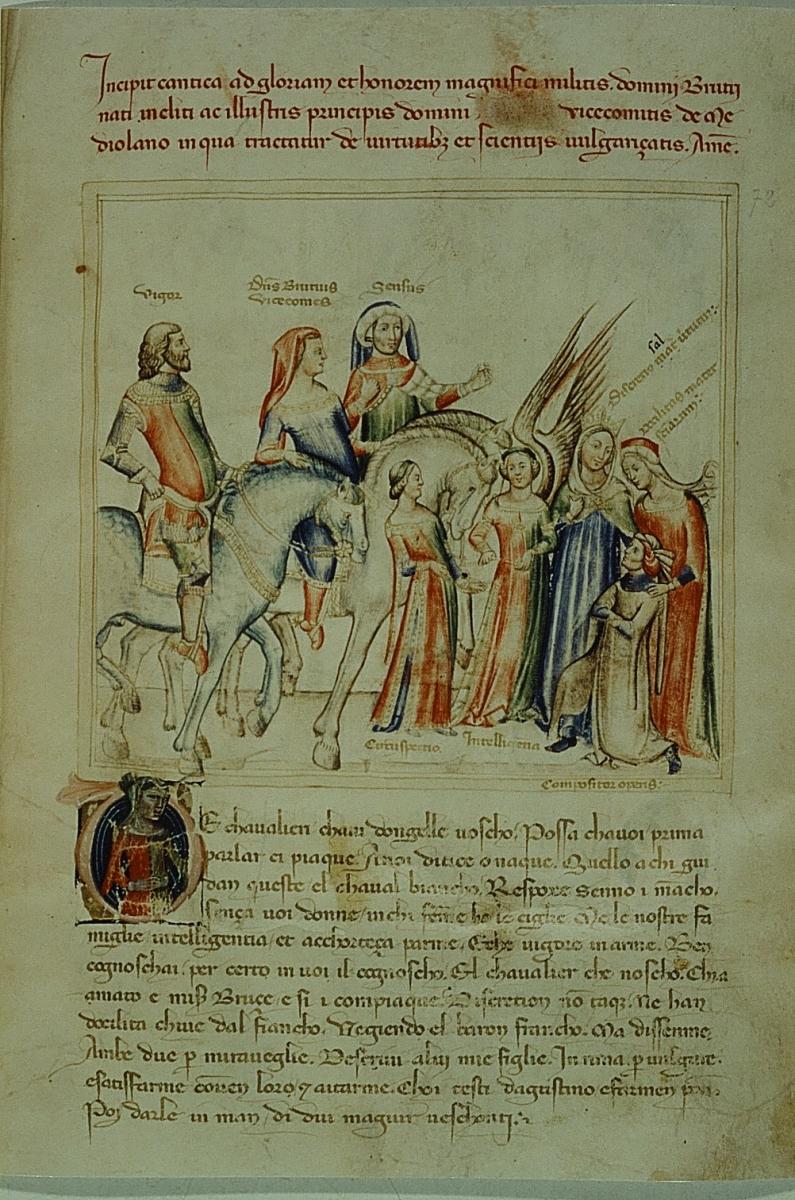 Incipit cantica ad gloriam et honorem magnifici militis domini Brutii
nati incliti ac illustris principis domini vicecomitis de Me
diolano in qua tractatur de virtutibꝫ et scientijs vulgariçatis. Amē.
72
Vigor
Dn̄s Brutius
Vicecomes
Sensus
Discretio mater virtutum
sal
Docilitas mater
sciarum
Circuspectio
Intelligencia
Compositor operis
E chavalieri cham dongelle voscho. Possa chavoi prima
parlar ci piaque. o naque. Quello a chi gui
dan queste el chaval biancho. Respoxe Senno i mācho.
sença voi donne in chi ferme ho le ciglie. Me le nostre fa
miglie intelligentia et acchorteça parme. Eche vigore in arme. Ben
cognoschai per certo in voi il cognoscho. El chavalier che noscho. Chia
amato e miss Bruce e si i compiaque. Discretion nō taqꝫ. Ne han
docilita chive dal fiancho. Vegiendo el baron francho. Ma dissenme
Ambe due p miraveglie. Vestrau altri mie figlie. In rima p vulgare.
esatisfarme coven loro ⁊ aitarme. Choi testi dagustino
Poi darle in man di dui magior veschonti.